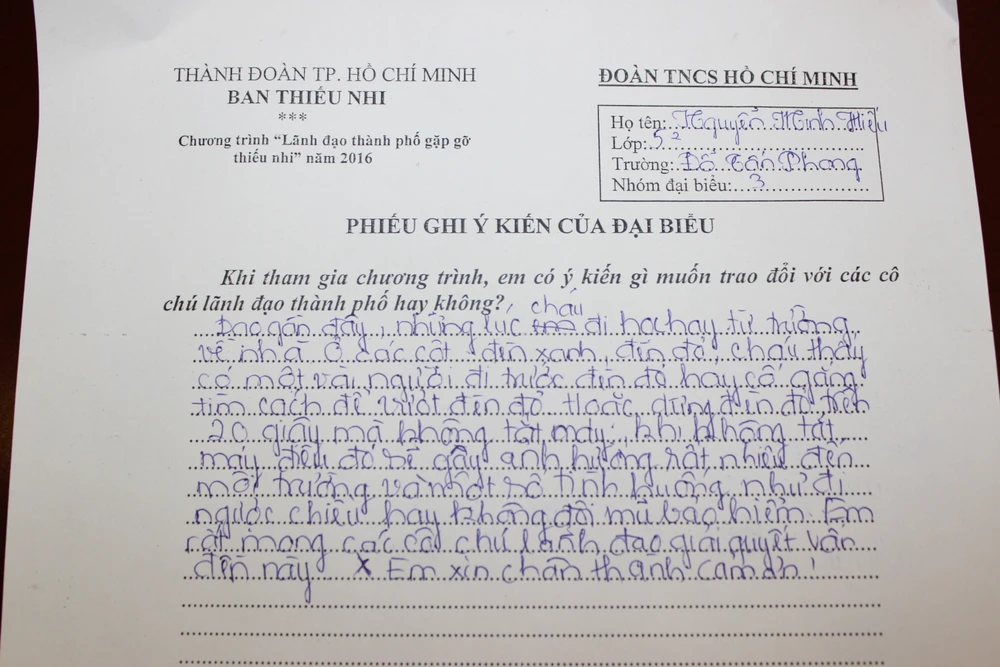 THÀNH ĐOÀN TP. HỒ CHÍ MINH
BAN THIẾU NHI
***
Chương trình “Lãnh đạo thành phố gặp gỡ
thiếu nhi” năm 2016
ĐOÀN TNCS HỒ CHÍ MINH
Họ tên: Nguyễn Minh Hiếu
Lớp: 5²
Trường: Đỗ Tấn Phong
Nhóm đại biểu: 3
PHIẾU GHI Ý KIẾN CỦA ĐẠI BIỂU
Khi tham gia chương trình, em có ý kiến gì muốn trao đổi với các cô
chú lãnh đạo thành phố hay không?
cháu
Dạo gần đây, những lúc đi học hay từ trường
về nhà ở các cột đèn xanh, đèn đỏ, cháu thấy
có một vài người đi trước đèn đỏ hay cố gắng
tìm cách để vượt đèn đỏ hoặc dừng đèn đỏ trên
20 giây mà không tắt máy, khi không tắt
máy điều đó sẽ gây ảnh hưởng rất nhiều đến
môi trường và một số tình huống như đi
ngược chiều hay không đội mũ bảo hiểm. Em
rất mong các cô chú lãnh đạo giải quyết vấn
đến này x Em xin chân thành cảm ơn!